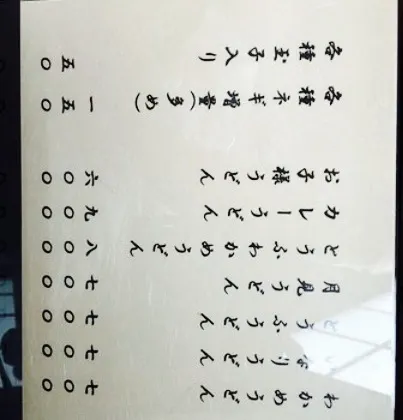 わかめうどん 七〇〇
いなりうどん 七〇〇
とうふうどん 七〇〇
月見うどん 七〇〇
とうふわかめうどん 八〇〇
カレーうどん 九〇〇
お子様うどん 六〇〇
各種ネギ増量(多め) 一五〇
各種玉子入り 五〇